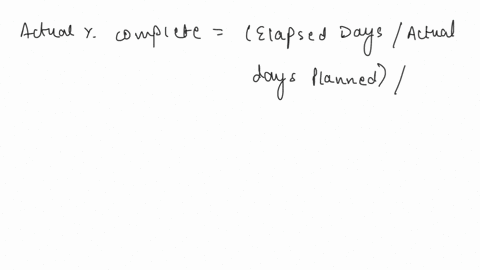 Actual %. complete = (Elapsed Days / Actual
days Planned) /